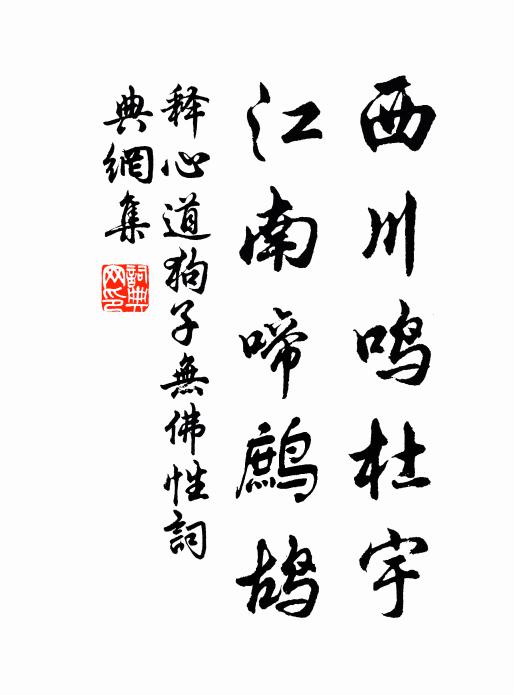 西川鸣杜宇
江南啼鹧鸪
释心道狗子無佛性詞
典網集
詞典網印